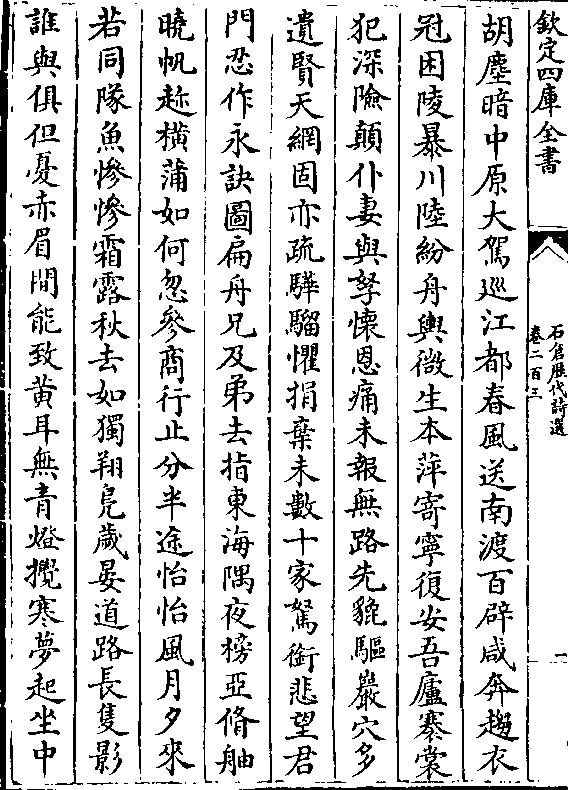 欽定四庫全書
石倉歷代詩選
卷二百三
一
胡塵暗中原大駕巡江都春風送南渡百辟咸奔趨衣
冠困陵暴川陸紛舟輿微生本萍寄寧復安吾廬褰裳
犯深險顛仆妻與孥懷恩痛未報無路先貔驅巖穴多
遺賢天網固亦疏驊騮懼捐棄未數十家駑銜悲望君
門忍作永訣圖扁舟兄及弟去指東海隅夜榜亞脩舳
曉帆趂橫蒲如何忽參商行止分半途怡怡風月夕來
若同隊魚慘慘霜露秋去如獨翔鳧歲晏道路長隻影
誰與俱但憂赤眉閒能致黃耳無青燈攪寒夢起坐中